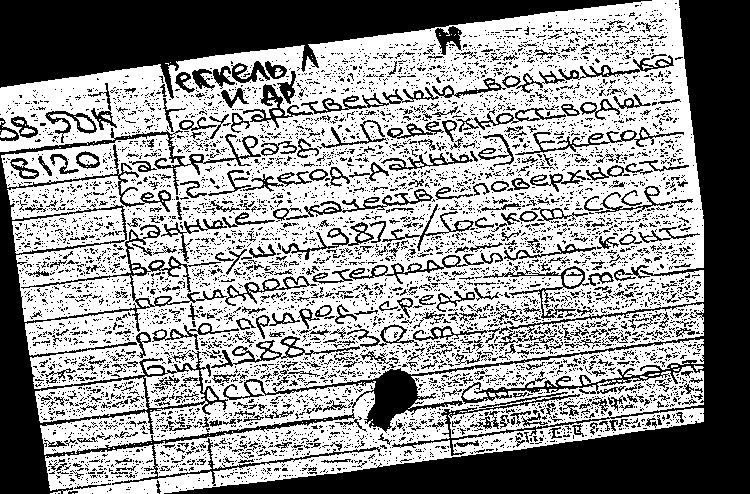 Геккель, Л
и др
Н
88-50К
8120
Государственный водный ка-
дастр [Разд. 1: Поверхност. воды
Сер 2: Ежегод. данные]: Ежегод.
данные о качестве поверхност.
вод суши, 1987г. / Гос. ком. СССР
по гидрометеорологии и конт-
ролю природ. среды. [Отск
Б.и, 1988. 30 см
ДСП
См. след. карт